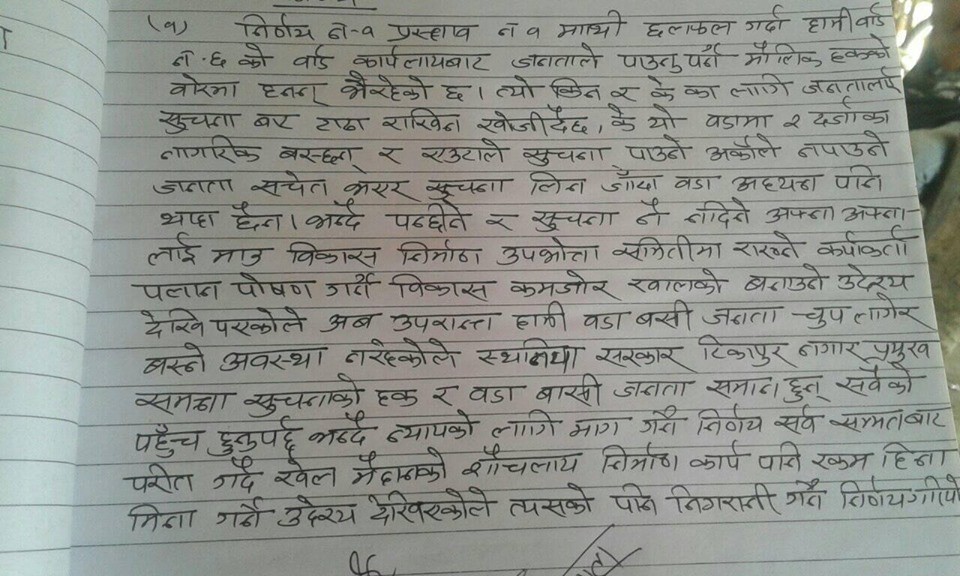 (१) निर्णय नं-१ प्रस्ताव नं १ माथी छलफल गर्दा हामी वार्ड
नं. ६ को वार्ड कार्यलायबाट जनताले पाउनु पर्ने मौलिक हकको
बारेमा हनन् भैरहेको छ । त्यो किन र के का लागि जनतालाई
सुचना बाट टाढा राखिन खोजीदैछ, के यो वडामा २ दर्जाका
नागरिक बस्छन् र एउटाले सुचना पाउने अर्कोले नपाउने
जनता सचेत भएर सुचना लिन जाँदा वडा अध्यक्ष पनि
थाहा छैन । भन्दै पन्छीने र सुचना नै नदिने अफ्ना अफ्ना-
लाई मात्र विकास निर्माण उपभोक्ता समितीमा राख्ने कर्यकर्ता
पलान पोषण गर्ने विकास कमजोर खालको बनाउने उदेश्य
देखि परकोले अब उपरान्त हामी वडा बसी जनता चुप लागेर
बस्ने अवस्था नरहेकोले स्थानिया सरकार टिकापुर नगार प्रमुख
समक्ष सुचनाको हक र वडा बासी जनता समान हुन् सबैको
पहुँच हुनुपर्छ भन्दै न्यायको लागि माग गर्ने निर्णय सर्व सम्मतबाट
परीत गर्दै खेल मैदानको शौचलाय निर्माण कार्य पनि रकम हिना
मिना गर्ने उदेश्य देखिएकोले त्यसको पनि निगरानी गर्ने निर्णय गरियो